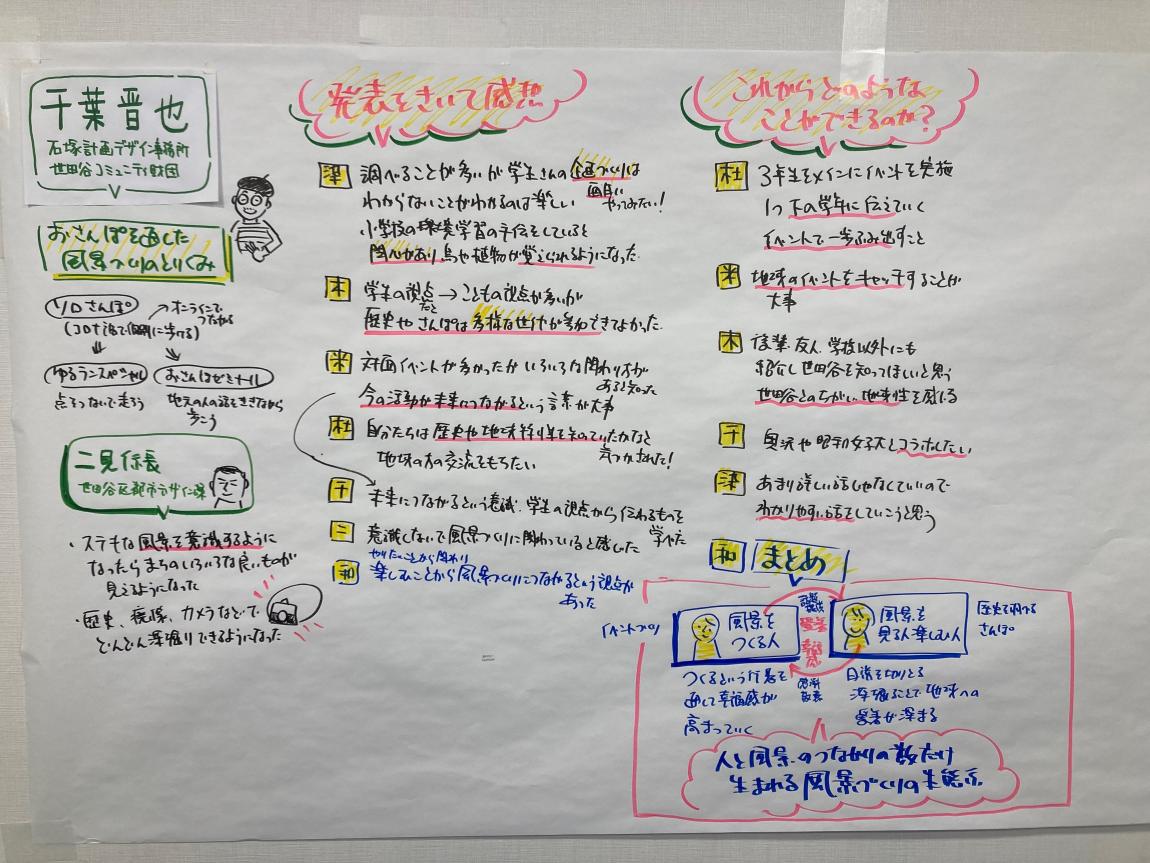 千葉晋也
石塚計画デザイン事務所
世田谷コミュニティ財団
おさんぽを通した
風景づくりのとりくみ
ソロさんぽ
オンラインでつながる
(コロナ禍で個別に歩ける)
ゆるランスペシャル
点をつないで走ろう
おさんぽゼミナール
地元の人の話をききながら
歩こう
二見係長
世田谷区都市デザイン課
・ステキな風景を意識するように
なったらまちのいろいろな良いものが
見えるようになった
・歴史、カメラなどで
どんどん深掘りできるようになった
発表をきいて感想
調べることが多いが学生さんの企画づくりは
面白い やってみたい!
わからないことがわかるのは楽しい
小学校の環境学習の手伝をしていると
関心があり鳥や植物が覚えられるようになった
本 学生の視点だと→こどもの視点が多いが
歴史やさんぽは多様な世代が参加できてよかった
米 対面イベントが多かったがいろいろな関わり方が
あると知った
今の活動が未来につながるという言葉が大事
杜 自分たちは歴史や地域
気づかされた!
地域の方の交流をもちたい
千 未来につながるという意識、学生の視点から伝わるものを
学べた
二 意識しないで風景づくりに関わっていると感じた
やりたいことから関わり
和 楽しむことから風景づくりにつながるという視点が
あった
これからどのような
ことができるのか?
杜 3年生をメインにイベントを実施
1つ下の学年に伝えていく
イベントで一歩ふみ出すこと
米 地域のイベントをキャッチすることが
大事
木 後輩、友人、学校以外にも
紹介し世田谷を知ってほしいと思う
世田谷とのちがい地域性を感じる
千 奥沢や昭和女子大とコラボしたい
あまり詳しい話じゃなくていいので
わかりやすい話をしていこうと思う
和 まとめ
イベントプロ
風景を
つくる人
風景を
見る人楽しむ人
歴史
さんぽ
つくるという行為を
通して幸福感が
高まっていく
日常を切りとる
深堀ることで地域への
愛着が深まる
人と風景のつながりの数だけ
生まれる風景づくりの生態系